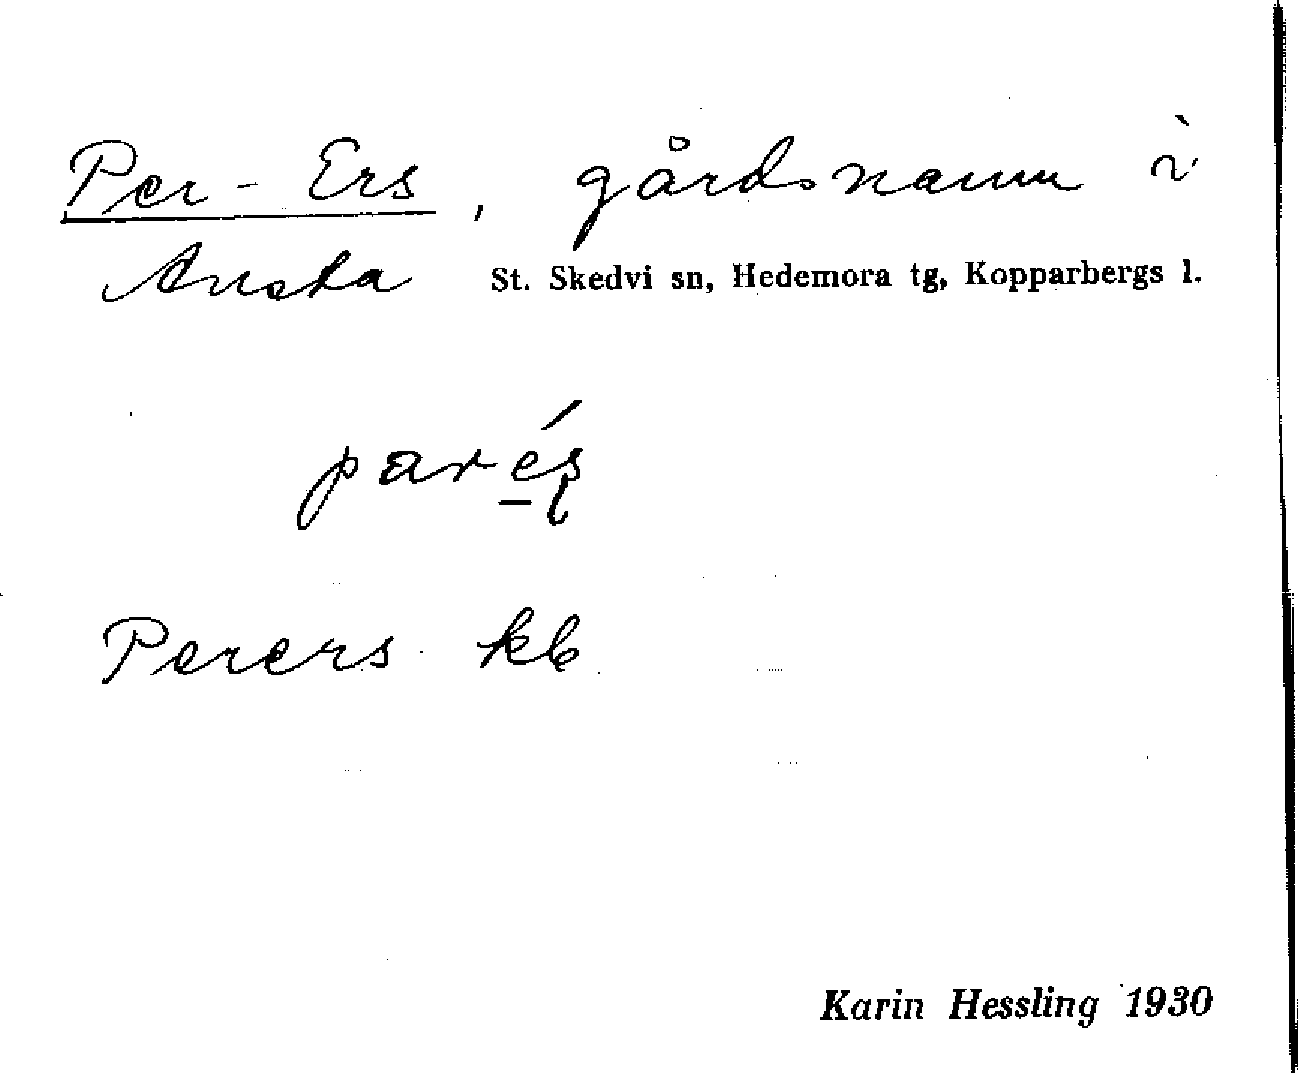 Per-Ers, gårdsnamn i
Ansta St. Skedvi sn, Hedemora tg, Kopparbergs l.
parés
Perers kb
Karin Hessling 1930